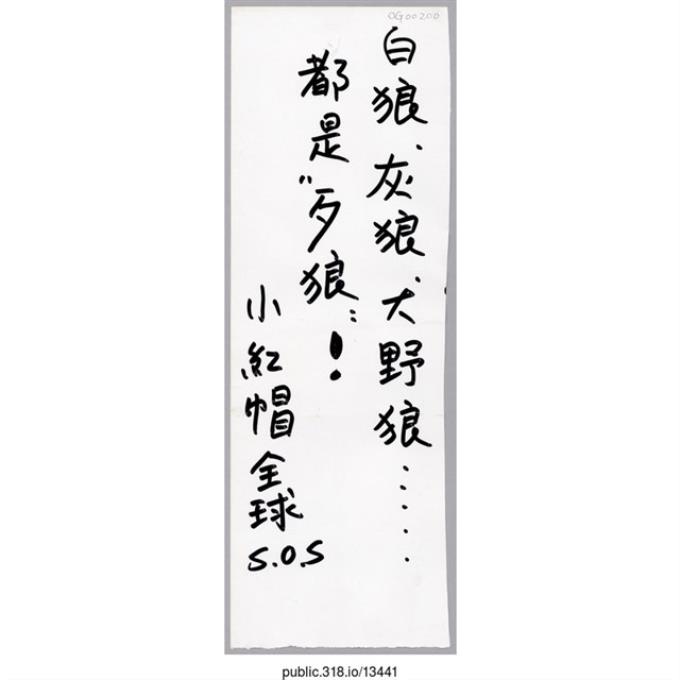 OG00200
白狼、灰狼、大野狼......
都是"歹狼"!
小紅帽全球S.O.S
public.318.io/13441